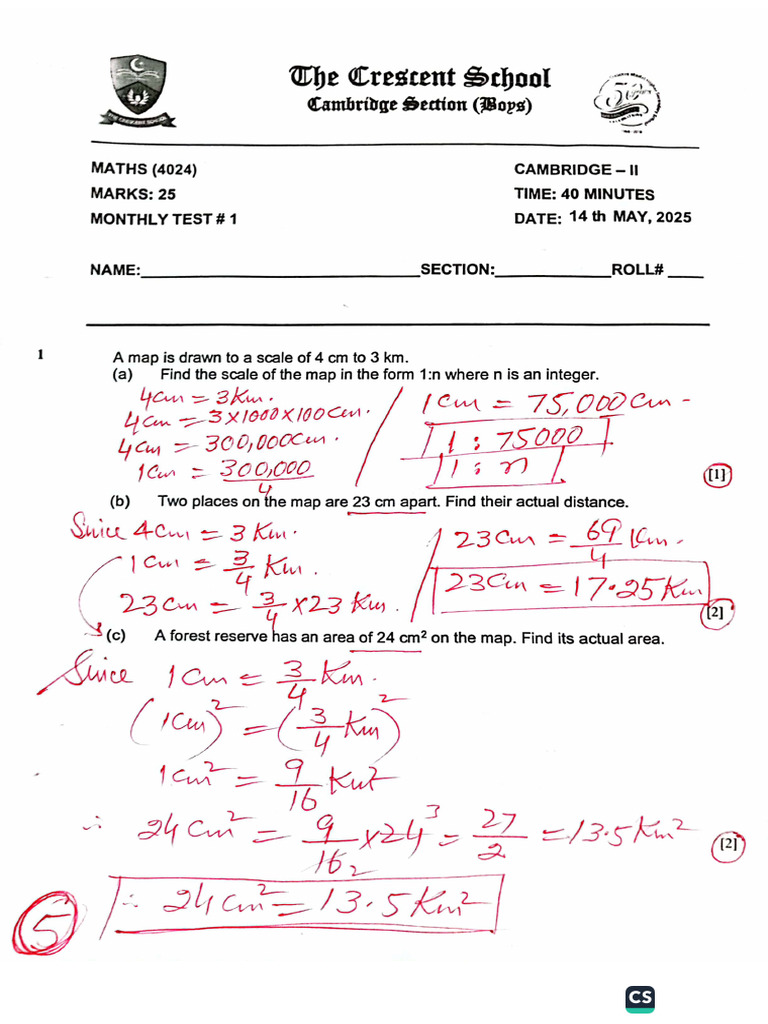 The Crescent School
Cambridge Section (Boys)
THE CRESCENT SCHOOL
MATHS (4024)
CAMBRIDGE – II
MARKS: 25
TIME: 40 MINUTES
MONTHLY TEST # 1
DATE: 14 th MAY, 2025
NAME: SECTION: ROLL#
1 A map is drawn to a scale of 4 cm to 3 km.
(a) Find the scale of the map in the form 1:n where n is an integer.
4cm = 3Km.
4cm = 3×1000×100cm.
4cm = 300,000cm.
1cm = 300,000/4
1cm = 75,000cm
1 : 75000
1 : n
[1]
(b) Two places on the map are 23 cm apart. Find their actual distance.
Since 4cm = 3 Km.
1cm = 3/4 Km.
23cm = 3/4 ×23 Km.
23cm = 69/4 Km.
23cm = 17.25Km
[2]
(c) A forest reserve has an area of 24 cm² on the map. Find its actual area.
Since 1cm = 3/4 Km.
(1cm)² = (3/4 Km)²
1cm² = 9/16 Km²
∴ 24cm² = 9/16 2 ×24 3 = 27/2 = 13.5Km²
[2]
∴ 24cm² = 13.5Km²
5
CS